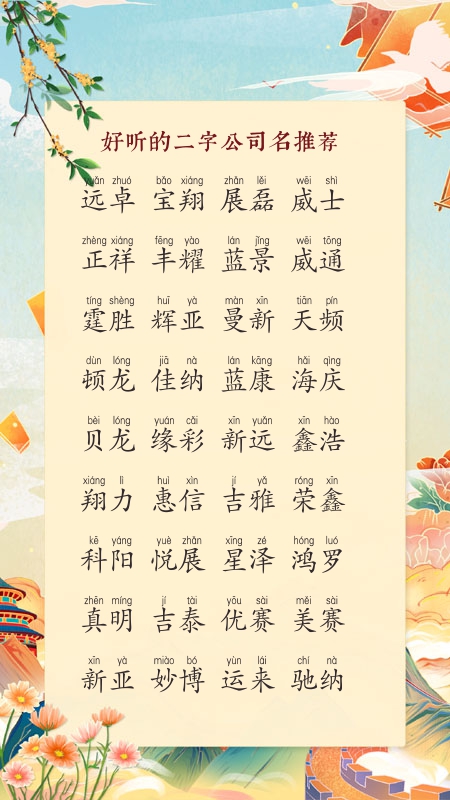 好听的二字公司名推荐
yuǎn zhuó bǎo xiáng zhǎn lěi wēi shì
远卓 宝翔 展磊 威士
zhèng xiáng fēng yào lán jǐng wēi tōng
正祥 丰耀 蓝景 威通
tíng shèng huī yà màn xīn tiān pín
霆胜 辉亚 曼新 天频
dùn lóng jiā nà lán kāng hǎi qìng
顿龙 佳纳 蓝康 海庆
bèi lóng yuán cǎi xīn yuǎn xīn hào
贝龙 缘彩 新远 鑫浩
xiáng lì huì xìn jí yǎ róng xīn
翔力 惠信 吉雅 荣鑫
kē yáng yuè zhǎn xīng zé hóng luó
科阳 悦展 星泽 鸿罗
zhēn míng jí tài yōu sài měi sài
真明 吉泰 优赛 美赛
xīn yà miào bó yùn lái chí nà
新亚 妙博 运来 驰纳